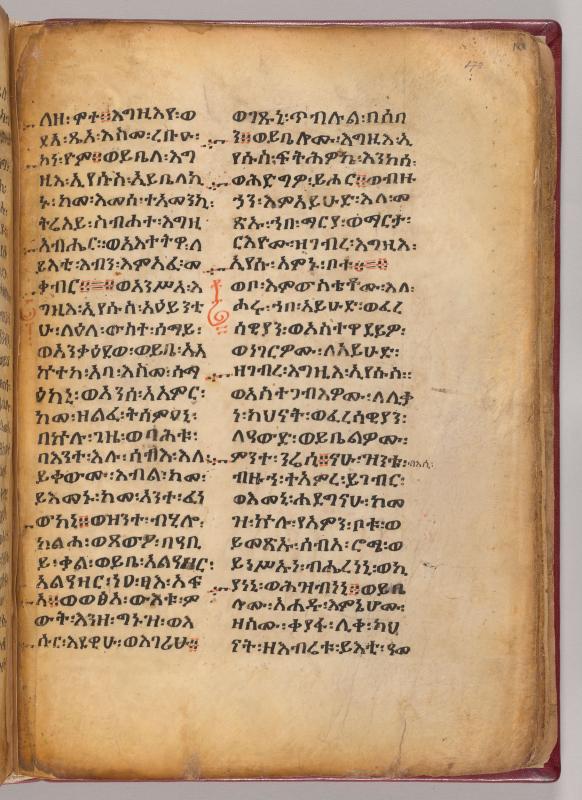 ለዘ፡ ሞተ፡ እግዚእየ፡ ወ
ጸአ፡ ጼአ፡ እስመ፡ ረቡዑ፡
ካኑ፡ ዮም። ወይቤላ፡ እግ
ዚእ፡ ኢየሱስ፡ ኢይቤለኪ
ኑ፡ ከመ፡ እመሰ፡ ተአመንኪ፡
ትሬእዪ፡ ስብሐተ፡ እግዚ
አብሔር። ወአእተትዋ፡ ለ
ይእቲ፡ እብን፡ እምአፈ፡ መ
ቀብር። ወአንሥአ፡ እ
ግዚእ፡ ኢየሱስ፡ አዕይንተ
ሁ፡ ላዕለ፡ ውስተ፡ ሰማይ፡
ወአንቃዕደወ፡ ወይቤ፡ አአ
ኵተከ፡ አባ፡ እስመ፡ ሰማ
ዕከኒ፡ ወአንሰ፡ አአምር፡
ከመ፡ ዘልፈ፡ ትሰምዐኒ፡
በኵሉ፡ ጊዜ፡ ወባሕቱ፡
በእንተ፡ እሉ፡ ሰብእ፡ እለ፡
ይቀውሙ፡ እብል፡ ከመ፡
ይእመኑ፡ ከመ፡ አንተ፡ ፈነ
ውከኒ። ወዘንተ፡ ብሂሎ፡
ከልሐ፡ ወጸውዖ፡ በዓቢ
ይ፡ ቃል፡ ወይቤ፡ አልዓዛር፡
አልዓዛር፡ ነዓ፡ ፃእ፡ አፍ
አ። ወወፅአ፡ ውእቱ፡ ም
ውት፡ እንዘ፡ ግኑዝ፡ ወእ
ሱር፡ እዴዊሁ፡ ወእገሪሁ።
ወገጹኒ፡ ጥብሉል፡ በሰበ
ን። ወይቤሎሙ፡ እግዚእ፡ ኢ
የሱስ፡ ፍትሕዎኬ፡ እንከሰ፡
ወሕድግዎ፡ ይሖር። ወብዙ
ኃን፡ እምአይሁድ፡ እለ፡ መ
ጽኡ፡ ኀበ፡ ማርያ፡ ወማርታ፡
ርእዮሙ፡ ዘገብረ፡ እግዚእ፡
ኢየሱ፡ አምኑ፡ ቦቱ።
ወቦ፡ እምውስቴቶሙ፡ እለ፡
ሖሩ፡ ኀበ፡ አይሁድ፡ ወፈሪ
ሳዊያን፡ ወአስተዋደይዎ፡
ወነገርዎሙ፡ ለአይሁድ፡
ዘገብረ፡ እግዚእ፡ ኢየሱስ።
ወአስተጋብእዎሙ፡ ለሊቃ
ነ፡ ካህናት፡ ወፈሪሳዊያን፡
ለዓውድ፡ ወይቤልዎሙ፡
ምንተ፡ ንሬሲ። ናሁ፡ ዝንቱ፡ ብእሲ፡
ብዙኀ፡ ተአምረ፡ ይገብር፡
ወእመኒ፡ ሐደግናሁ፡ ከመ
ዝ፡ ኵሉ፡ የአምን፡ ቦቱ፡ ወ
ይመጽኡ፡ ሰብአ፡ ሮሜ፡ ወ
ይነሥኡነ፡ ብሔረነኒ፡ ወኪ
ያነኒ፡ ወሕዝብነኒ። ወይቤ
ሎሙ፡ አሐዱ፡ እምኔሆሙ፡
ዘስሙ፡ ቀያፋ፡ ሊቀ፡ ካህ
ናት፡ ዘእብሬቱ፡ ይእቲ፡ ዓመ